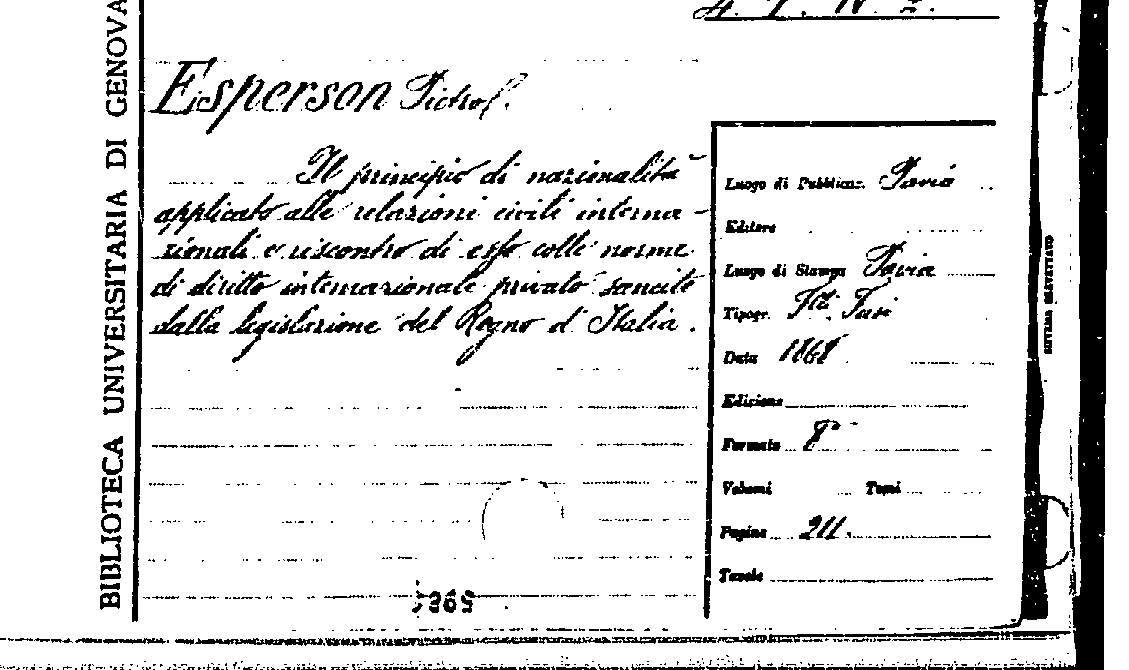 BIBLIOTECA UNIVERSITARIA DI GENOVA
Esperson Pietro
Il principio di nazionalità
applicato alle relazioni civili interna-
zionali e riscontro di esso colle norme
di diritto internazionale privato sancite
dalla legislazione del Regno d'Italia.
Luogo di Pubblicaz. Pavia
Editore
Luogo di Stampa Pavia
Tipogr. Fusi
Data 1868
Edizione
Formato 8°
Volumi Tomi
Pagine 211.
Tavole